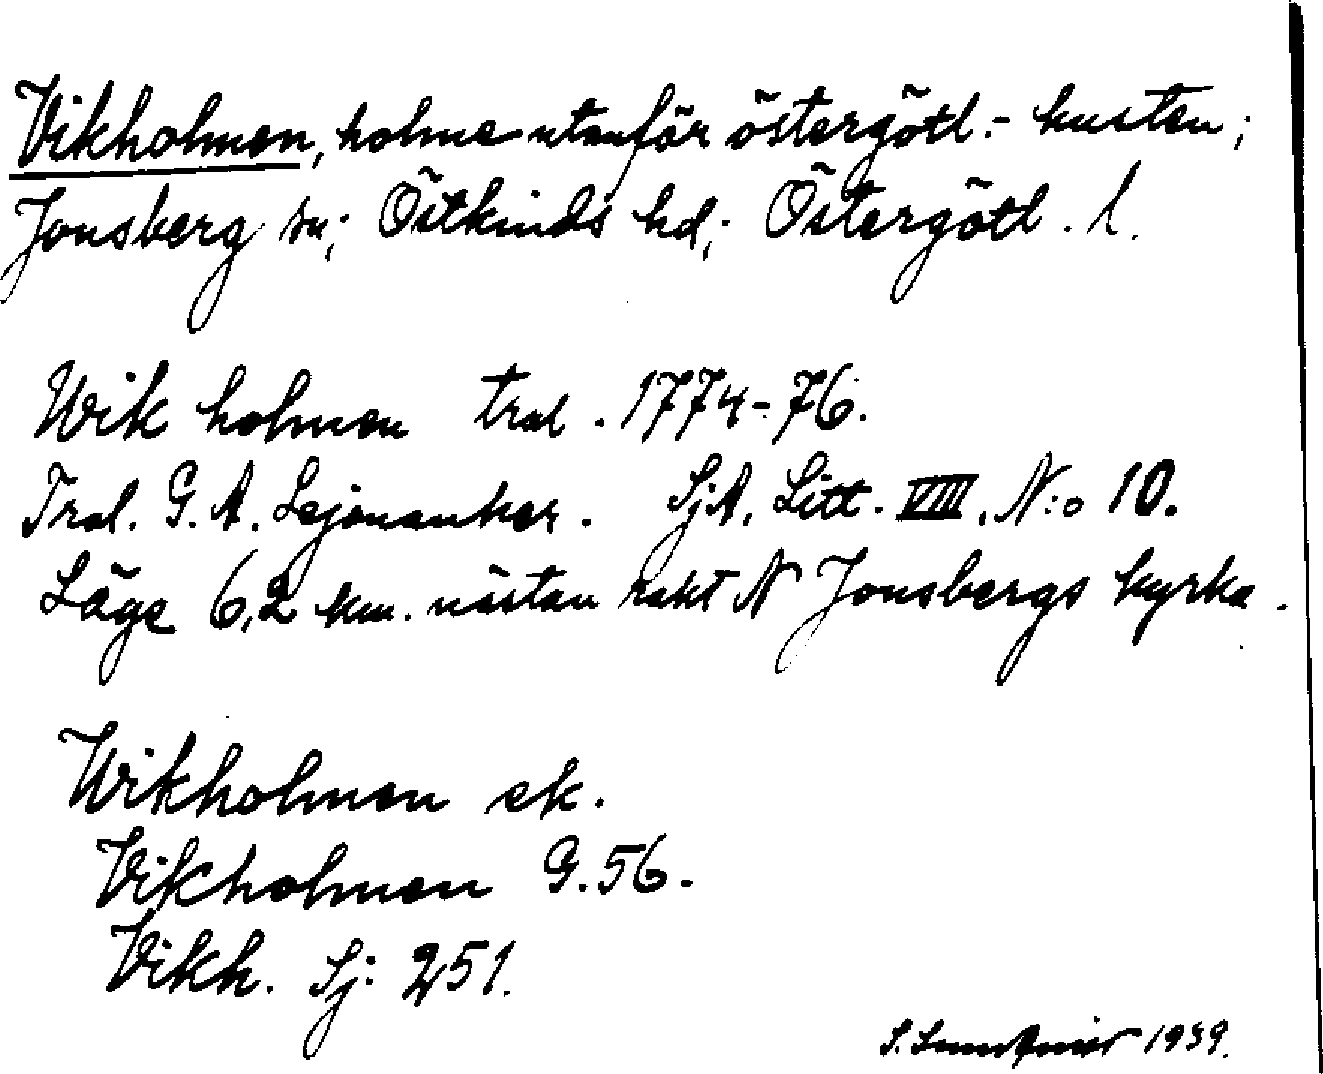 Vikholmen, holme utanför östergötl.- kusten;
Jonsberg sn; Östkinds hd; Östergötl. l.
Wik holmen trol. 1774-76.
Trol. G. A. Lejonanker. SjA. Litt. VIII. N:o 10.
Läge 6,2 km. nästan rakt N Jonsbergs kyrka.
Wikholmen ek.
Vikholmen G. 56.
Vikh. Sj: 251.
S. Lundqvist 1939.